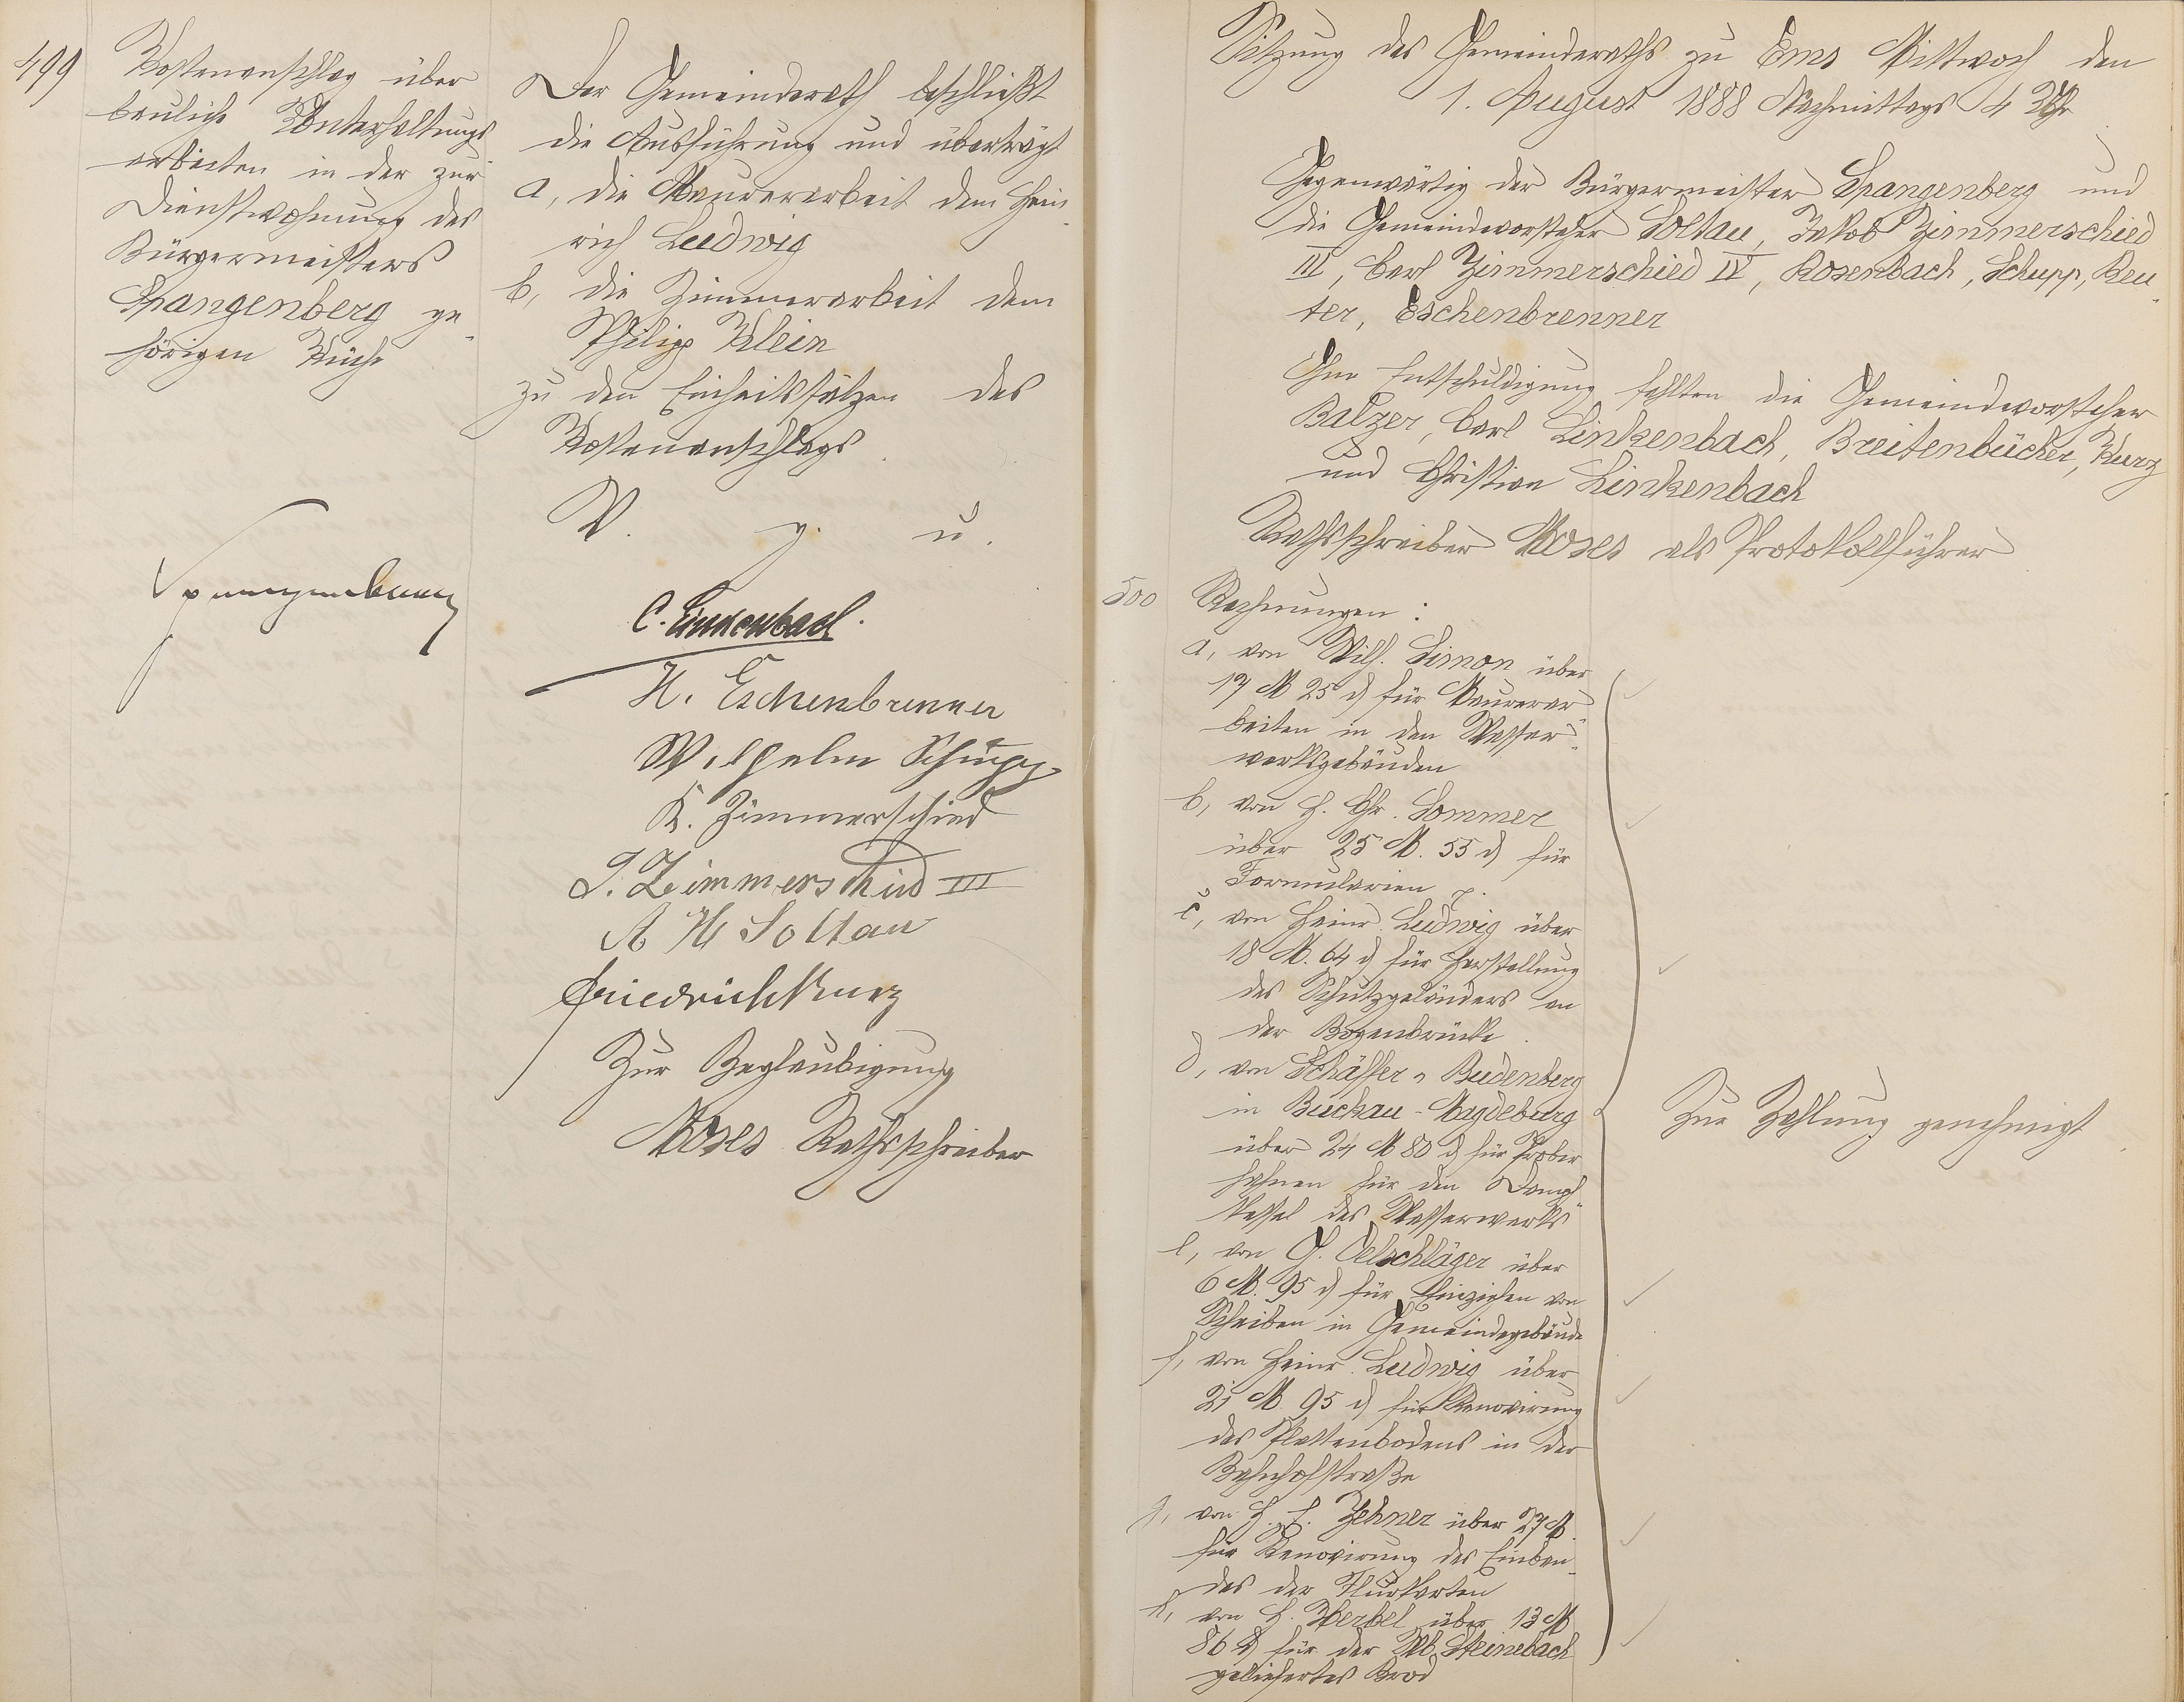 499
Kostenanschlag über
bauliche Unterhaltungs
arbeiten in der zur
Dienstwohnung des
Bürgermeisters
Spangenberg ge-
hörigen Küche
Spangenberg
Der Gemeinderath beschließt
die Ausführung und überträgt
a, die Maurerarbeit dem Hein-
rich Ludwig
b, die Zimmerarbeit dem
Philipp Klein
zu den Einheitssätzen des
Kostenanschlags.
V. g. u.
C. Linkenbach.
H. Eschenbrenner
Wilhelm Schupp
K. Zimmerschied
J. Zimmerschied III
A H Soltau
Friedrich Kurz
Zur Beglaubigung
Moses Rathsschreiber
Sitzung des Gemeinderaths zu Ems Mittwoch den
1. August 1888 Nachmittags 4 Uhr
Gegenwärtig der Bürgermeister Spangenberg und
die Gemeindevorsteher Soltau, Jakob Zimmerschied
III, Carl Zimmerschied IV, Rosenbach, Schupp, Reu-
ter, Eschenbrenner
Ohne Entschuldigung fehlten die Gemeindevorsteher
Balzer, Carl Linkenbach, Breitenbücher, Kurz
und Christian Linkenbach
Rathsschreiber Moses als Protokollführer
500 Rechnungen:
a, von Wilh. Simon über
17 M 25 d für Maurerar-
beiten in den Wasser-
werksgebäuden
b, von H. Chr. Sommer
über 25 M. 55 d für
Formularien p.
c, von Heinr. Ludwig über
18 M. 64 d für Herstellung
des Schutzgeländers an
der Bogenbrücke.
d, von Schäffer u Budenberg
in Buckau-Magdeburg
über 24 M 80 d für Probir
hahnen für den Dampf-
kessel des Wasserwerks
e, von G. Oelschläger über
6 M. 95 d für Einziehen von
Scheiben in Gemeindegebäude
f, von Heinr. Ludwig über
21 M. 95 d für Renovirung
des Plattenbodens in der
Bahnhofstraße
g, von H. F. Zehner über 27 M.
für Renovirung des Einban-
des der Flurkarten
h, von H. Herbel über 13 M
86 d für der Wb. Steinebach
geliefertes Brod
Zur Zahlung genehmigt